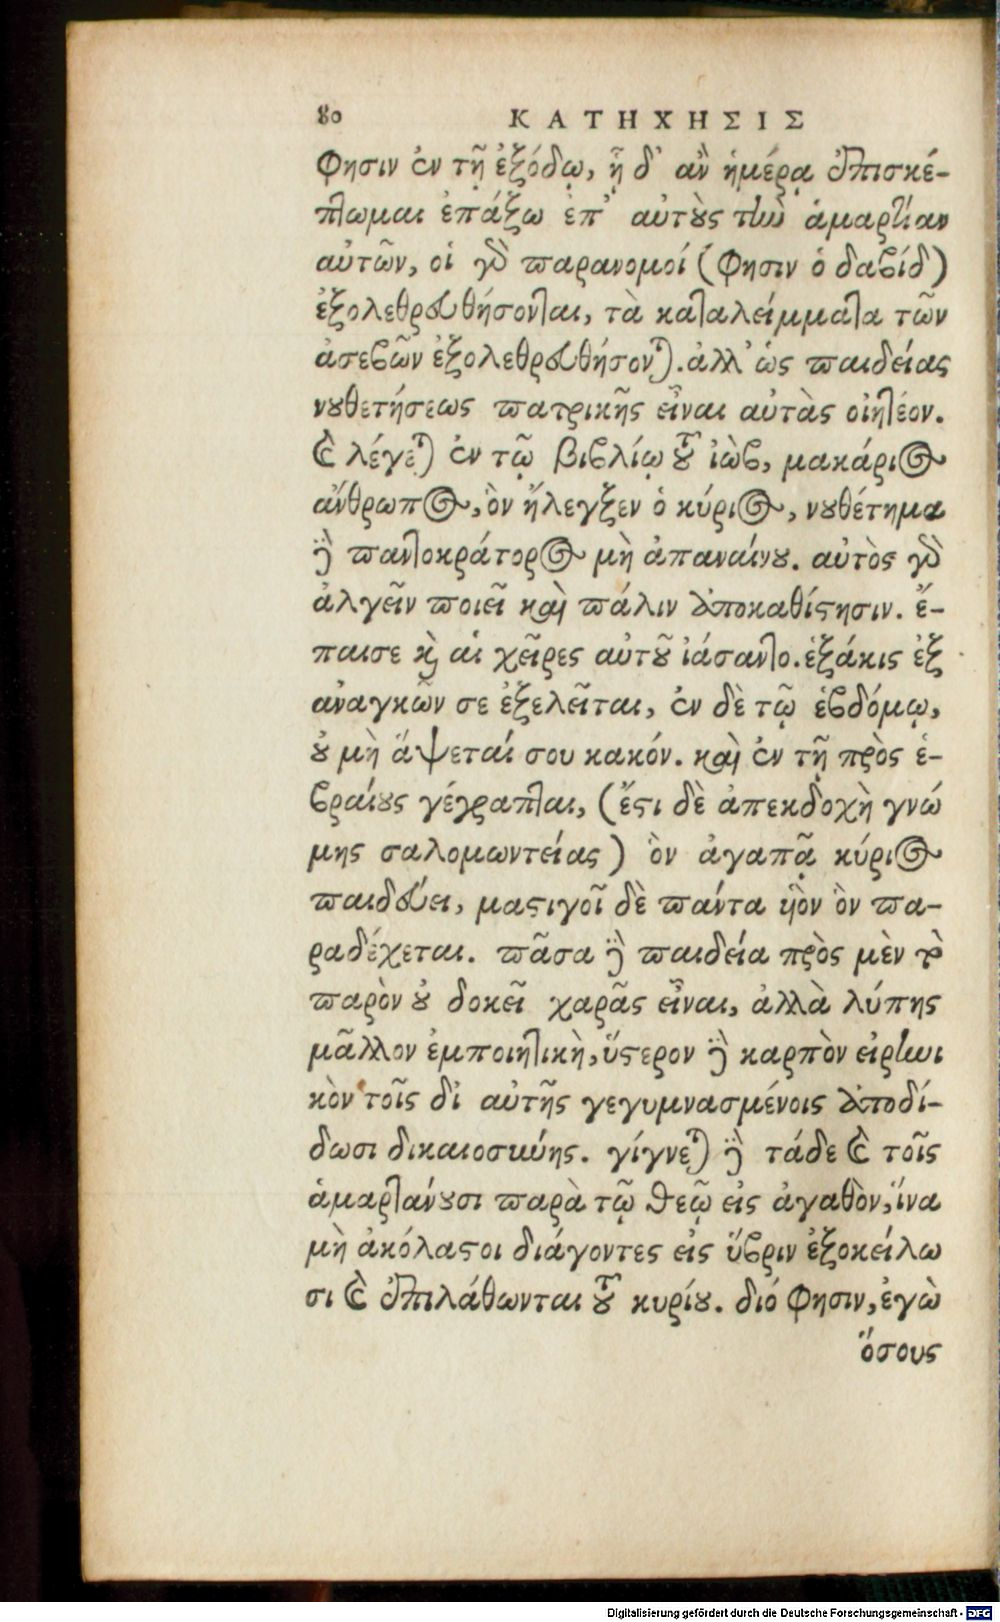 80 ΚΑΤΗΧΗΣΙΣ
φησιν ἐν τῇ ἐξόδῳ, ᾗ δ' ἂν ἡμέρᾳ ἐπισκέ-
πτωμαι ἐπάξω ἐπ' αὐτοὺς τὴν ἁμαρτίαν
αὐτῶν, οἱ γὰρ παρανομοί (φησιν ὁ δαβίδ)
ἐξολεθρευθήσονται, τὰ καταλείμματα τῶν
ἀσεβῶν ἐξολεθρευθήσονται. ἀλλ' ὡς παιδείας
νουθετήσεως πατρικῆς εἶναι αὐτὰς οἰητέον.
καὶ λέγεται ἐν τῷ βιβλίῳ τοῦ ἰὼβ, μακάριος
ἄνθρωπος, ὃν ἤλεγξεν ὁ κύριος, νουθέτημα
δὲ παντοκράτορος μὴ ἀπαναίνου. αὐτὸς γὰρ
ἀλγεῖν ποιεῖ καὶ πάλιν ἀποκαθίστησιν. ἔ-
παισε καὶ αἱ χεῖρες αὐτοῦ ἰάσαντο. ἑξάκις ἐξ
ἀναγκῶν σε ἐξελεῖται, ἐν δὲ τῷ ἑβδόμῳ,
οὐ μὴ ἅψεταί σου κακόν. καὶ ἐν τῇ πρὸς ἑ-
βραίους γέγραπται, (ἔστι δὲ ἀπεκδοχὴ γνώ
μης σαλομωντείας) ὃν ἀγαπᾷ κύριος
παιδεύει, μαστιγοῖ δὲ πάντα υἱὸν ὃν πα-
ραδέχεται. πᾶσα δὲ παιδεία πρὸς μὲν τὸ
παρὸν οὐ δοκεῖ χαρᾶς εἶναι, ἀλλὰ λύπης
μᾶλλον ἐμποιητικὴ, ὕστερον δὲ καρπὸν εἰρηνι
κὸν τοῖς δι αὐτῆς γεγυμνασμένοις ἀποδί-
δωσι δικαιοσύνης. γίγνεται δὲ τάδε καὶ τοῖς
ἁμαρτάνουσι παρὰ τῷ θεῷ εἰς ἀγαθὸν, ἵνα
μὴ ἀκόλαστοι διάγοντες εἰς ὕβριν ἐξοκείλω
σι καὶ ἐπιλάθωνται τοῦ κυρίου. διό φησιν, ἐγὼ
ὅσους
Digitalisierung gefördert durch die Deutsche Forschungsgemeinschaft - DFG